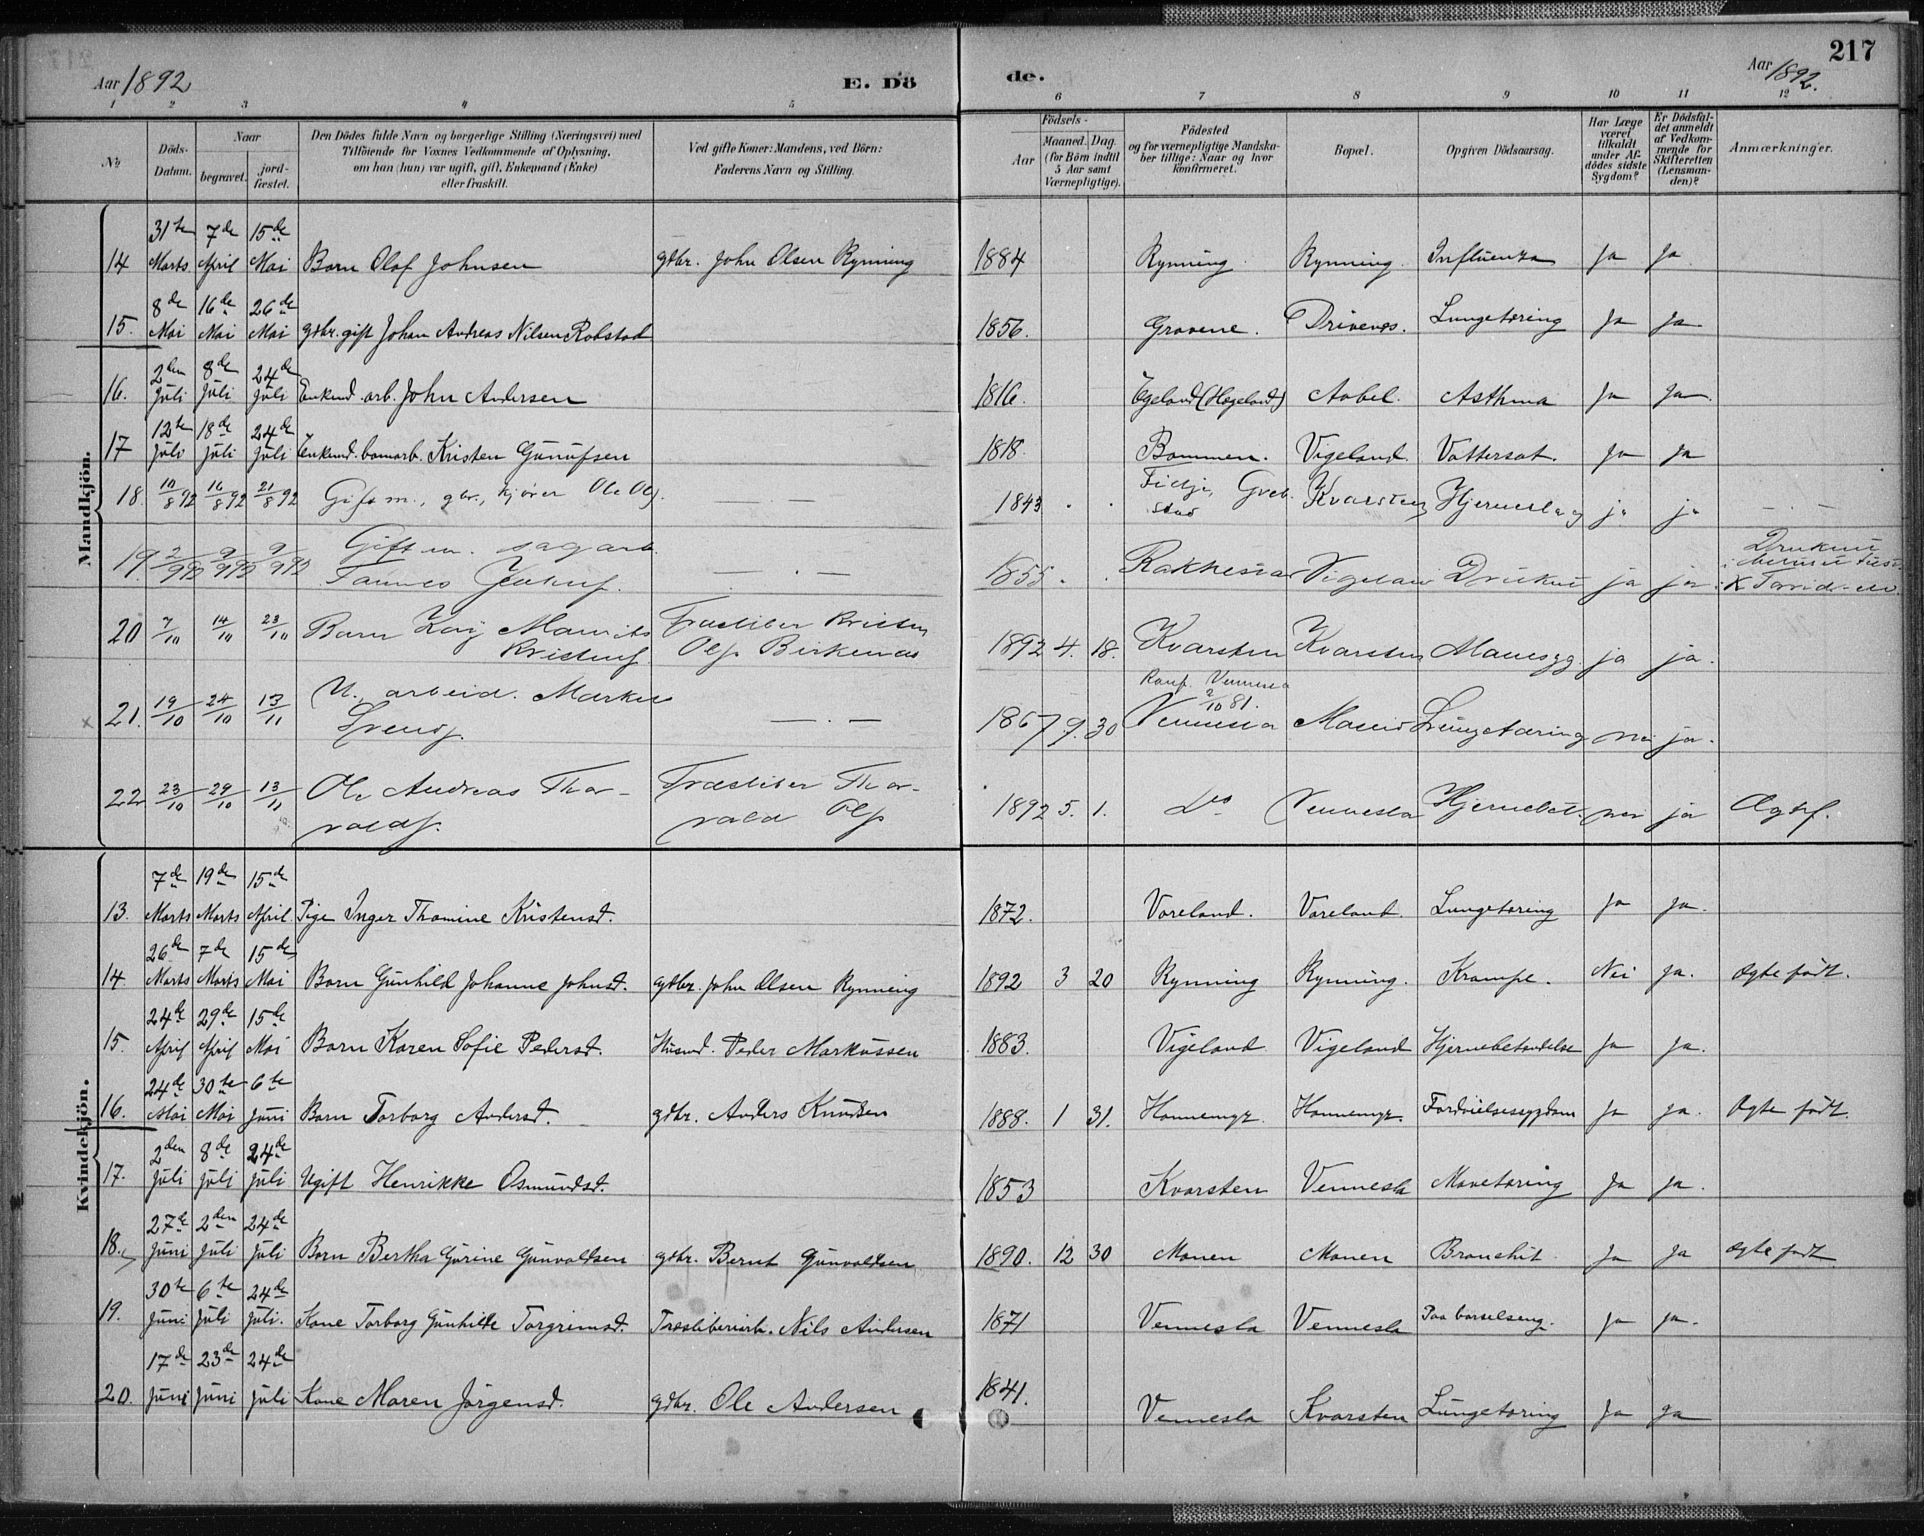 217
Aar 1892
E. Dö
de.
Aar 1892.
1 2 3 4 5 6 7 8 9 10 11 12
No
Döds-Datum.
Naar
begravet.
jord-fæstet.
Den Dödes fulde Navn og borgerlige Stilling (Næringsvei) med
Tilföiende for Voxnes Vedkommende af Oplysning,
om han (hun) var ugift, gift, Enkemand (Enke)
eller fraskilt.
Ved gifte Koner: Mandens, ved Börn:
Faderens Navn og Stilling.
Födsels-
Aar
Maaned. Dag.
(for Börn indtil
5 Aar samt
Værnepligtige).
Födested
og for værnepligtige Mandska-
ber tillige: Naar og hvor
konfirmeret.
Bopæl.
Opgiven Dödsaarsag.
Har Læge
været
tilkaldt
under Af-
dödes sidste
Sygdom?
Er Dödsfal-
det anmeldt
af Vedkom-
mende for
Skifteretten
(Lensman-
den)?
Anmærkninger.
Mandkjön.
14 31te Marts 7de April 15de Mai Barn Olaf Johnsen gdbr. John Olsen Rynning 1884 Rynning Rynning Influenza Ja Ja
15. 8de Mai 16de Mai 26de Mai gdbr. gift Johan Andreas Nilsen Robstad 1856. Gravene. Drivenes. Lungetæring Ja Ja
16. 2den Juli 8de Juli 24de Juli Enkmd. arb. John Andersen 1816. Egeland (Hægeland) Aabel. Asthma Ja Ja
17 12te Juli 18de Juli 24de Juli Enkmd. Kristen Gunufsen 1818. Bommen. Vigeland Vattersot. Ja Ja
18. 10/8 92 16/8 92 21/8 92 Gift m., gbr., Ole Ols. — . — 1843 . . Kvarsten Hjerneslag ja ja — . —
19. 2/9 92 9/9 92 9/9 92 Gift m. sagarb. — . — 1855 . . Vigeland ja ja
20 7/10 14/10 23/10 Barn Kay Maurits Kristens. Træsliber Kristen Ols. Birkenæs 1892 4. 18. Kvarsten Kvarsten Mavesyg. ja ja.
21. 19/10 24/10 13/11 U. arbeid. Markus Svends. — . — 1867 9. 30 Konf. Vennesla 2/10 81. Vennesla Lungetæring nei ja.
22 23/10 29/10 13/11 Ole Andreas Thor-valds. Træsliber Thor-vald Ols. 1892 5. 1. Do Vennesla Hjernebet. nei ja Ægtef.
Kvindekjön.
13. 7de Marts 19de Marts 15de April Pige Inger Thomine Kristensd. 1872. Voreland. Voreland. Lungetæring Ja Ja.
14. 26de Marts 7de Marts 15de Mai Barn Gunhild Johanne Johnsd. gdbr. John Olsen Rynning 1892 3 20 Rynning Rynning. Krampe. Nei Ja. Ægte født.
15. 24de April 29de April 15de Mai Barn Karen Sofie Pedersd. Husmd. Peder Markussen 1883. Vigeland Vigeland Hjernebetændelse Ja Ja.
16. 24de Mai 30te Mai 6te Juni Barn Torborg Andersd. gdbr. Anders Knudsen 1888. 1 31. Honnemyr. Honnemyr. Fordøielsessygdom Ja Ja. Ægte født.
17. 2den Juli 8de Juli 24de Juli Ugift Henrikke Osmundsd. 1853 Kvarsten Vennesla Mavetæring Ja Ja.
18. 27de Juni 2den Juli 24de Juli Barn Bertha Gurine Gunvaldsen gdbr. Bernt Gunvaldsen 1890. 12 30 Monen Monen Bronchit Ja Ja Ægte født
19. 30te Juni 6te Juli 24de Juli. Kone Torborg Gunhilde Torgrimsd. Træsliberiarb. Nils Andersen 1871 Vennesla Vennesla Paa barselseng. Ja Ja.
20. 17de Juni 23de Juni 24de Juli Kone Maren Jörgensd. gdbr. Ole Andersen 1841. Vennesla Kvarsten Lungetæring Ja Ja